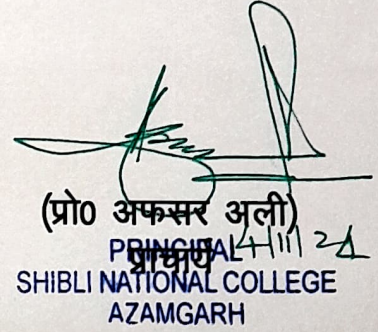 (प्रो० अफसर अली)
प्राचार्य
PRINCIPAL
SHIBLI NATIONAL COLLEGE
AZAMGARH